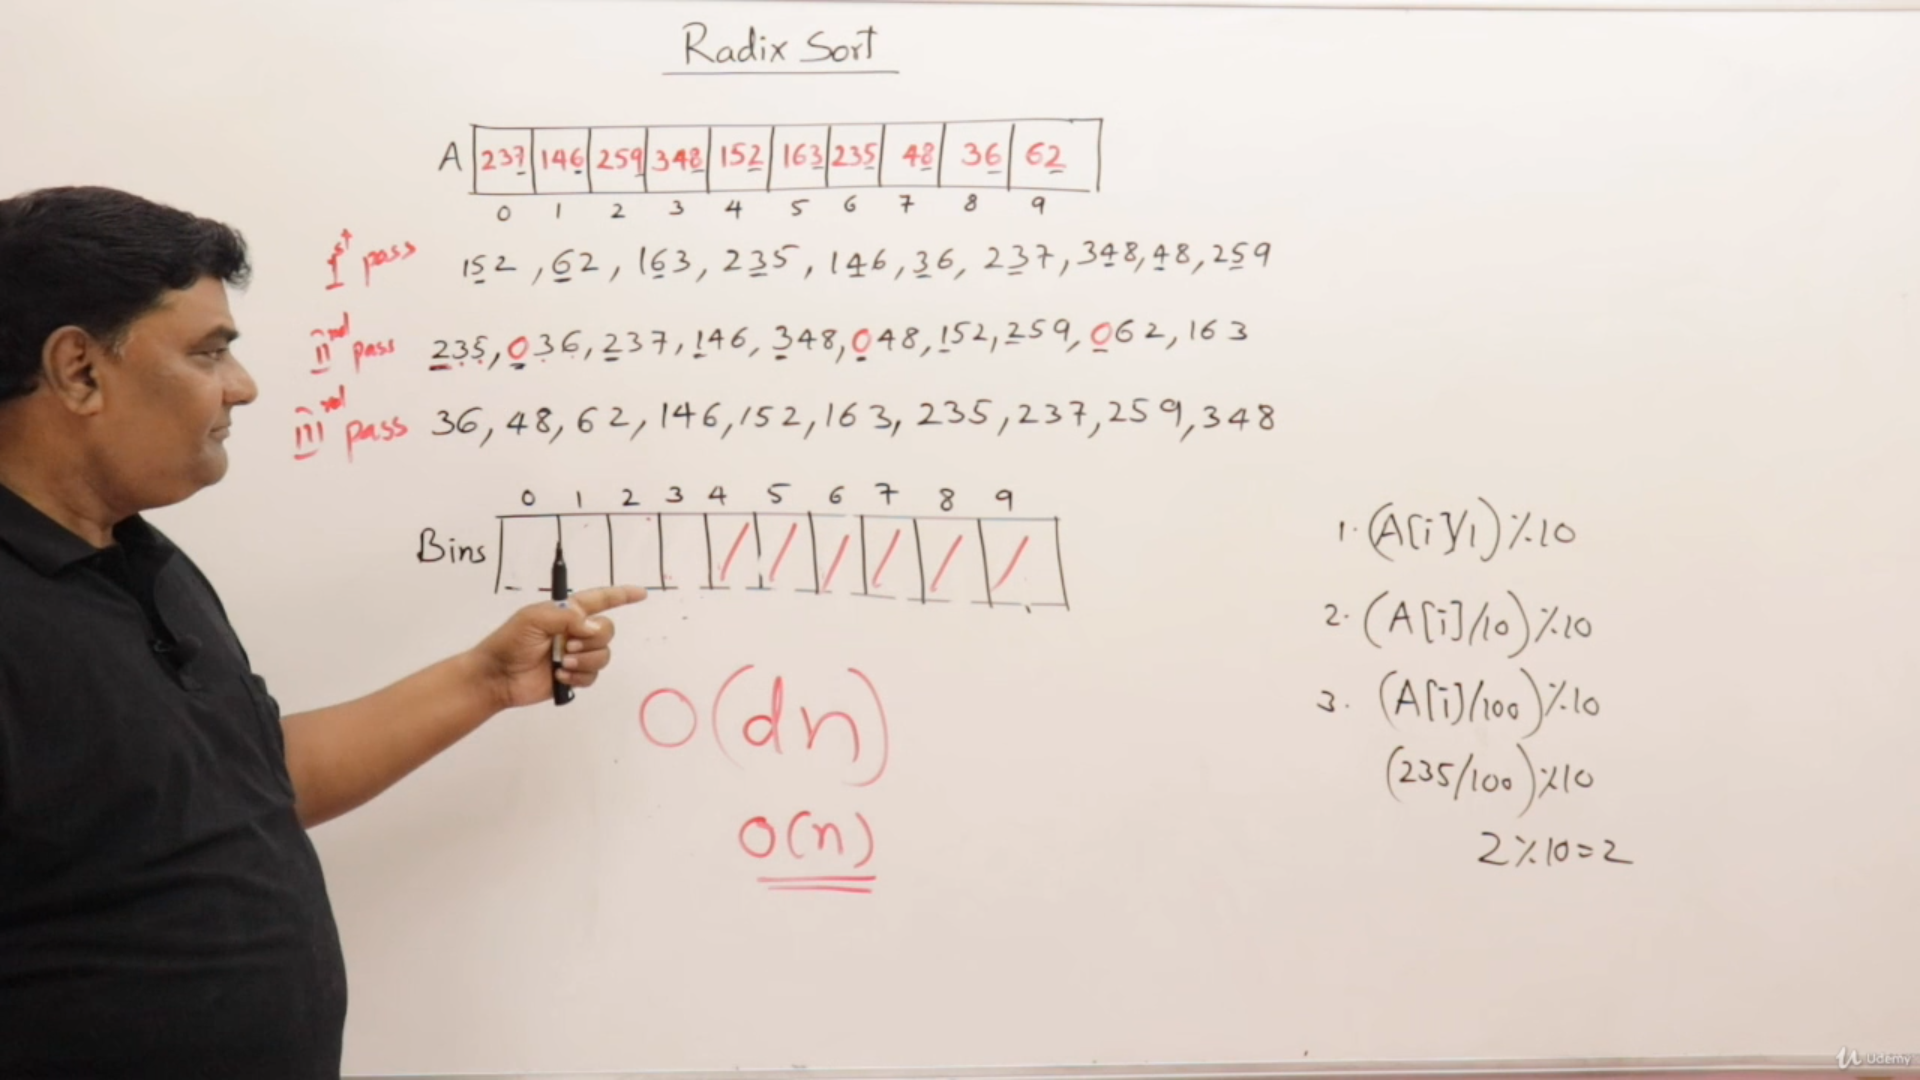 Radix Sort
A 237 146 259 348 152 163 235 48 36 62
0 1 2 3 4 5 6 7 8 9
Ist pass 152, 62, 163, 235, 146, 36, 237, 348, 48, 259
IInd pass 235, 036, 237, 146, 348, 048, 152, 259, 062, 163
IIIrd pass 36, 48, 62, 146, 152, 163, 235, 237, 259, 348
0 1 2 3 4 5 6 7 8 9
Bins / / / / / /
O(dn)
O(n)
1. (A[i]/1)%10
2. (A[i]/10)%10
3. (A[i]/100)%10
(235/100)%10
2%10=2
Udemy